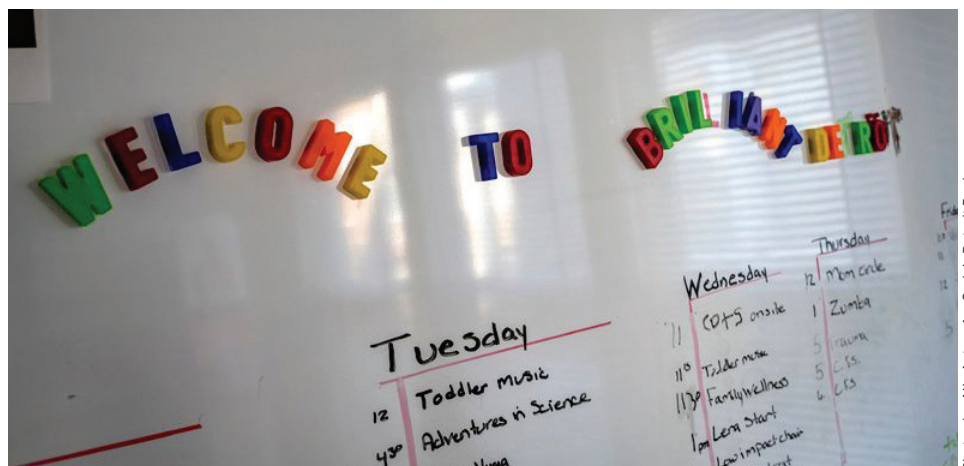 WELCOME TO BRILLIANT DETROIT
Tuesday
12 Toddler Music
430 Adventures in Science
Wednesday
11 onsite
Toddler music
1130 Family Wellness
1pm Lena Start
Low impact chair
Thursday
12 Mom circle
1 Zumba
5 Trauma
5